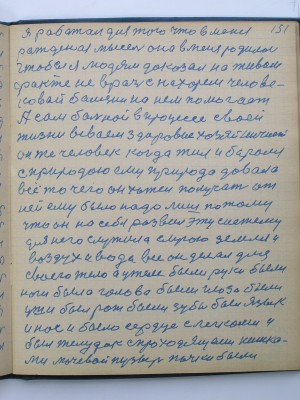 151
Я работал для того что в меня
рожденая мысель она в меня родилась
чтобы я людям доказал на живом
факте не врач с нахорем челове-
ка он на нем помогает
А сам больной в процесе своей
жизни
он же человек когда жил и боролся
с природою ему природа довала
всё то чего он хотел получать от
ней ему было надо лиш потому
что он на себя развел эту систему
для него служила сырою земля и
воздух и вода все он делал для
своего тело а у тело были руки были
ноги была голова были глоза были
уши был рот были зубы был язык
и нос и было сердце с легкими и
был желудок с проходящами кишка-
ми мочевой пузырь почки были